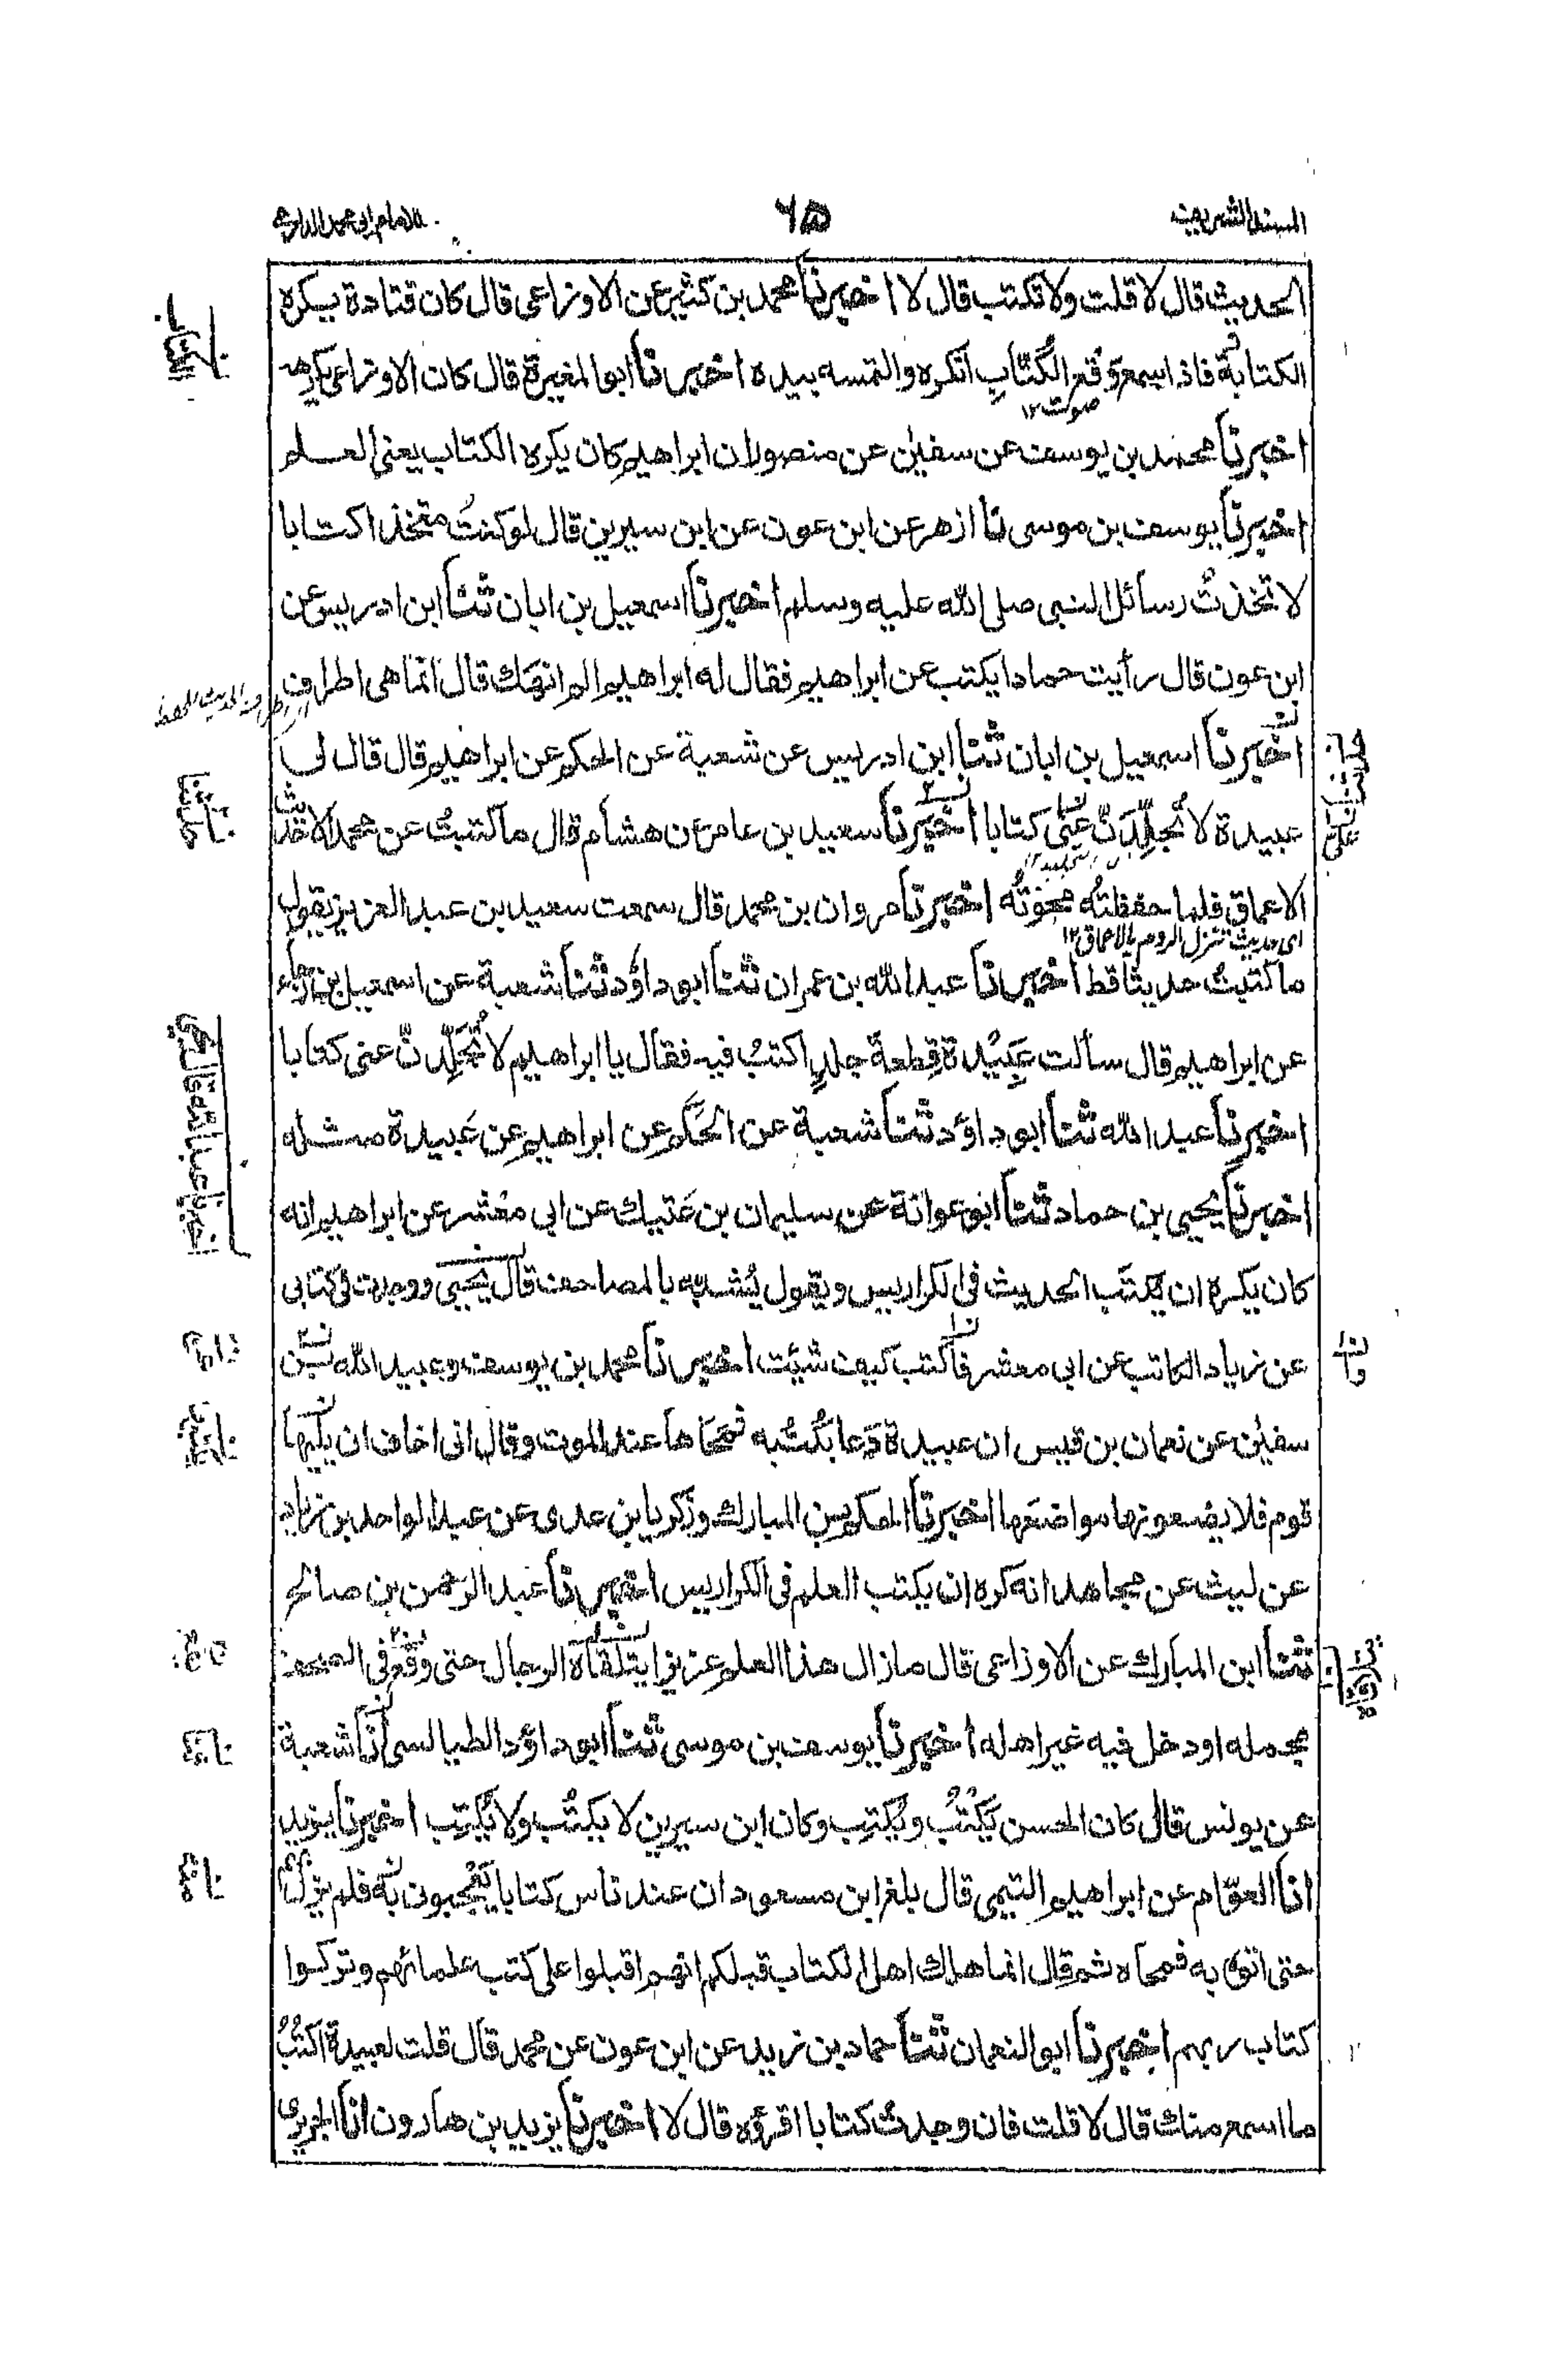 المسند الشريف
٦٥
للامام ابى محمد الدارمى
الحديث قال لا قلت ولا تكتب قال لا اخبرنا محمد بن كثير عن الاوزاعى قال كان قتادة يكره
الكتابة فاذا سمع وقع الكتاب انكره والتمسه بيده اخبرنا ابو المغيرة قال كان الاوزاعى يكرهه
صوت ١٢
اخبرنا محمد بن يوسف عن سفين عن منصور ان ابراهيم كان يكره الكتاب يعنى العلم
اخبرنا يوسف بن موسى نا ازهر عن ابن عون عن ابن سيرين قال لو كنتُ متخذا كتابا
لا تخذتُ رسائل النبى صلى الله عليه وسلم اخبرنا اسمعيل بن ابان ثنا ابن ادريس عن
ابن عون قال رأيت حمادا يكتب عن ابراهيم فقال له ابراهيم الم انهك قال انما هى اطراف
اخبرنا اسمعيل بن ابان ثنا ابن ادريس عن شعبة عن الحكم عن ابراهيم قال قال لى
عبيدة لا تُجلِّدَنّ عنى كتابا اخبرنا سعيد بن عامر عن هشام قال ما كتبتُ عن محمد الا حديث
الاعماق فلما حفظتُه محوتُه اخبرنا مروان بن محمد قال سمعت سعيد بن عبد العزيز يقول
اى حديث تنزل الروم بالاعماق ١٢
ما كتبتُ حديثا قط اخبرنا عبد الله بن عمران ثنا ابو داؤد ثنا شعبة عن اسمعيل بن رجاء
عن ابراهيم قال سألت عَبِيْدة قِطعةَ جلدٍ اكتبُ فيه فقال يا ابراهيم لا تُجَلِّدنّ عنى كتابا
اخبرنا عبد الله ثنا ابو داؤد ثنا شعبة عن الحَكَم عن ابراهيم عن عَبيدة مثله
اخبرنا يحيى بن حماد ثنا ابو عوانة عن سليمان بن عَتيك عن ابى معْشر عن ابراهيم انه
كان يكره ان يكتب الحديث فى الكراريس ويقول يُشبه بالمصاحف قال يحيى ووجدت فى كتابى
عن زياد الكاتب عن ابى معشر فاكتب كيف شئت اخبرنا محمد بن يوسف وعبيد الله عن
سفين عن نعمان بن قيس ان عبيدة دَعا بكُتُبه فمَحَاها عند الموت وقال انى اخاف ان يليها
قوم فلا يضعونها مواضعَها اخبرنا الحكم بن المبارك وزكريا بن عدى عن عبد الواحد بن زياد
عن ليث عن مجاهد انه كره ان يكتب العلم فى الكراريس اخبرنا عبد الرحمن بن صالح
ثنا ابن المبارك عن الاوزاعى قال ما زال هذا العلم عزيزا يتلقاه الرجال حتى وقع فى الصحف
فحمله او دخل فيه غير اهله اخبرنا يوسف بن موسى ثنا ابو داؤد الطيالسى انا شعبة
عن يونس قال كان الحسن يَكْتُبُ ويُكتِب وكان ابن سيرين لا يكتُب ولا يُكتِب اخبرنا يزيد
انا العوّام عن ابراهيم التيمى قال بلغ ابن مسعود ان عند ناس كتابا يُعْجبون به فلم يزل
حتى اتوه به فمحاه ثم قال انما هلك اهل الكتاب قبلكم انهم اقبلوا على كتب علمائهم وتركوا
كتاب ربهم اخبرنا ابو النعمان ثنا حماد بن زيد عن ابن عون عن محمد قال قلت لعبيدة اكتُبُ
ما اسمع منك قال لا قلت فان وجدتُ كتابا اقرؤه قال لا اخبرنا يزيد بن هارون انا الجريرى